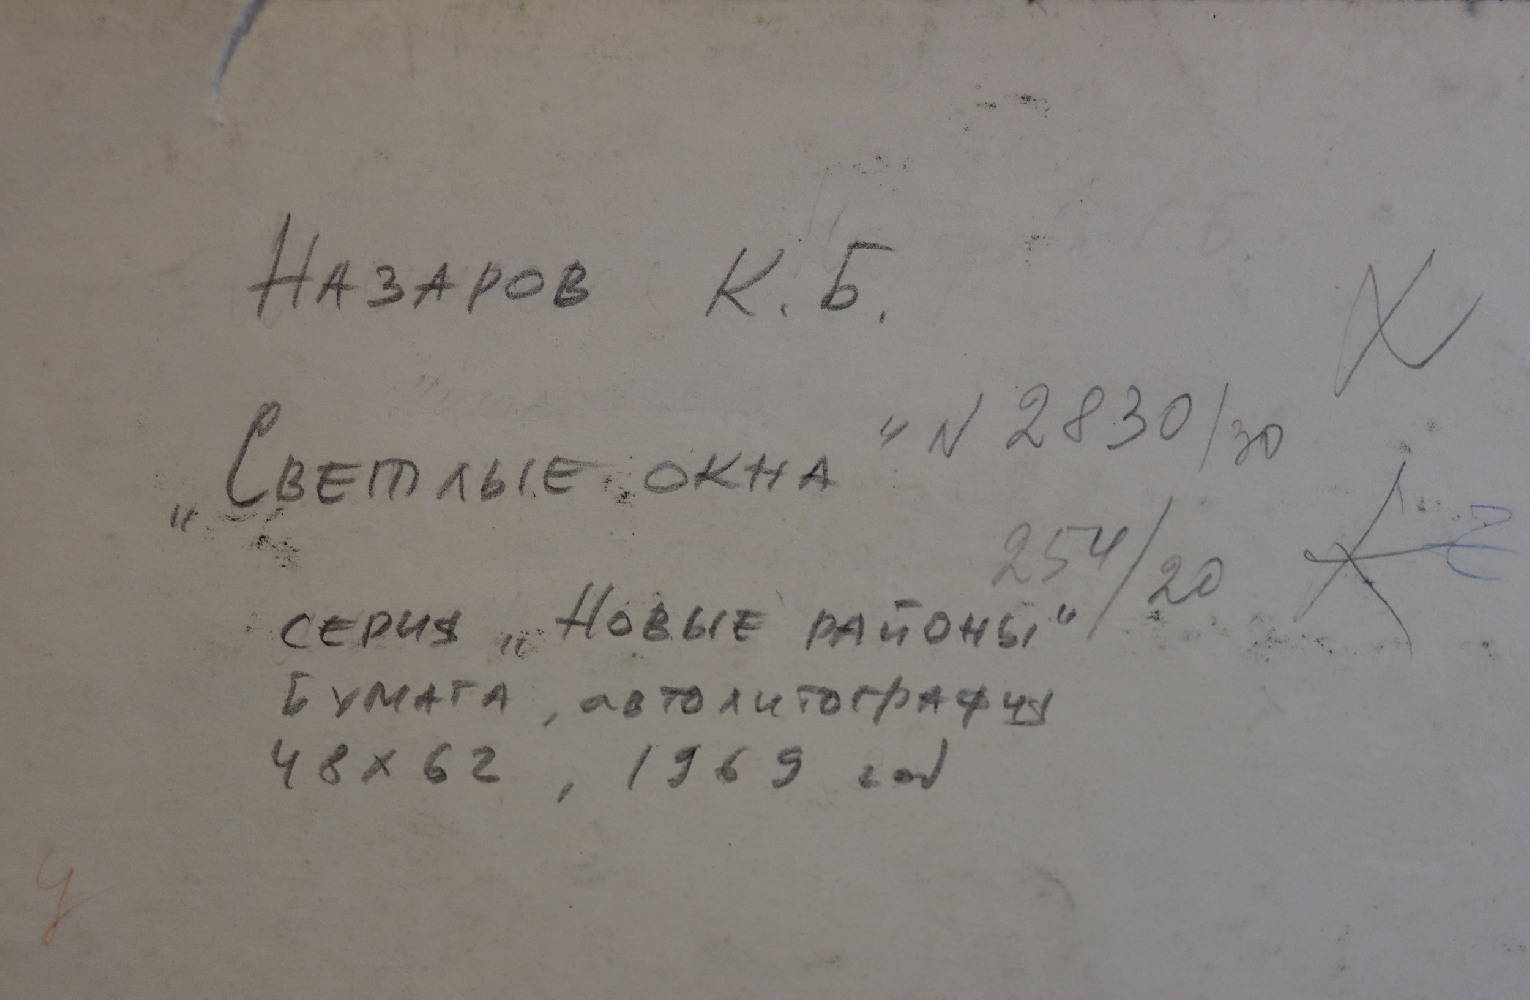 Назаров К.Б.
„Светлые окна" N 2830/30
254/20
серия „Новые районы"
Бумага, автолитография
48х62, 1969 год